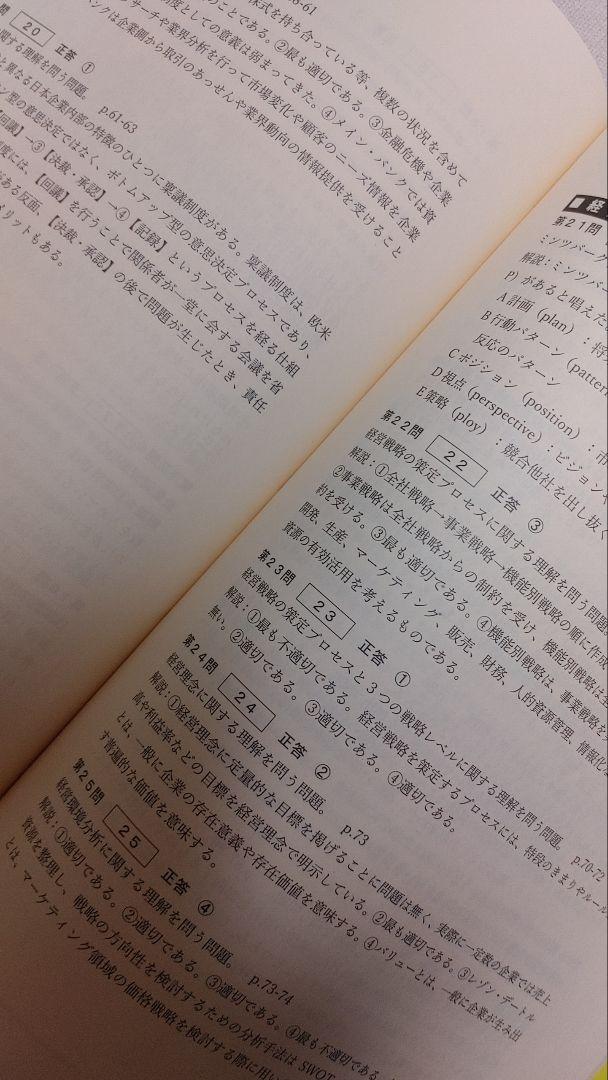 8-61
株式を持ち合っている等、複数の状況を含めて
のことである。②最も適切である。③金融危機や企業
制度としての意義は弱まってきた。④メイン・バンクでは資
サーチや業界分析を行って市場変化や顧客のニーズ情報を企業
ンクは企業間から取引のあっせんや業界動向の情報提供を受けること
問 20 正答 ①
関する理解を問う問題。 p.61-63
と異なる日本企業内部の特徴のひとつに稟議制度がある。稟議制度は、欧米
ン型の意思決定ではなく、ボトムアップ型の意思決定プロセスであり、
【回議】→③【決裁・承認】→④【記録】というプロセスを経る仕組
度には、【回議】を行うことで関係者が一堂に会する会議を省
がある反面、【決裁・承認】の後で問題が生じたとき、責任
メリットもある。
■経
第21問
ミンツバーグ
解説：ミンツバー
P）があると唱えた
A 計画（plan）：将
B 行動パターン（pattern
反応のパターン
C ポジション（position）：市
D 視点（perspective）：ビジョン
E 策略（ploy）：競合他社を出し抜く
第22問 22 正答 ③
経営戦略の策定プロセスに関する理解を問う問題
解説：①全社戦略→事業戦略→機能別戦略の順に作成
②事業戦略は全社戦略からの制約を受け、機能別戦略は
約を受ける。③最も適切である。④機能別戦略は、事業戦略を
開発、生産、マーケティング、販売、財務、人的資源管理、情報化
資源の有効活用を考えるものである。
第23問 23 正答 ①
経営戦略の策定プロセスと3つの戦略レベルに関する理解を問う問題。 p.70-72
解説：①最も不適切である。経営戦略を策定するプロセスには、特段のきまりやルール
無い。②適切である。③適切である。④適切である。
第24問 24 正答 ②
経営理念に関する理解を問う問題。 p.73
解説：①経営理念に定量的な目標を掲げることに問題は無く、実際に一定数の企業では売上
高や利益率などの目標を経営理念で明示している。②最も適切である。③レゾン・デートル
とは、一般に企業の存在意義や存在価値を意味する。④バリューとは、一般に企業が生み出
す普遍的な価値を意味する。
第25問 25 正答 ④
経営環境分析に関する理解を問う問題。 p.73-74
解説：①適切である。②適切である。③適切である。④最も不適切である
資源を整理し、戦略の方向性を検討するための分析手法は SWOT
とは、マーケティング領域の価格戦略を検討する際に用い